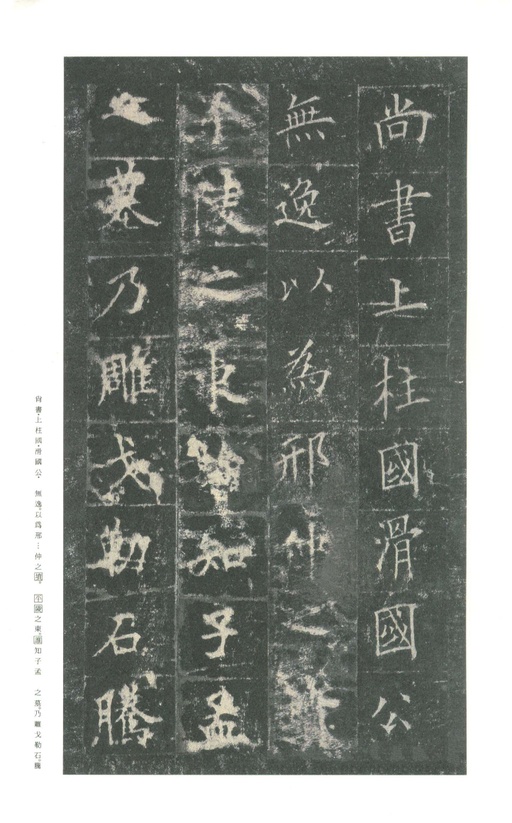 尚書上柱國滑國公
無逸以為邢仲之
平陵之東知子孟
之墓乃雕戈勒石騰
尚書・上柱國・滑國公・無逸。以爲邢…仲之 平陵之東。知子孟 之墓。乃雕戈勒石。騰